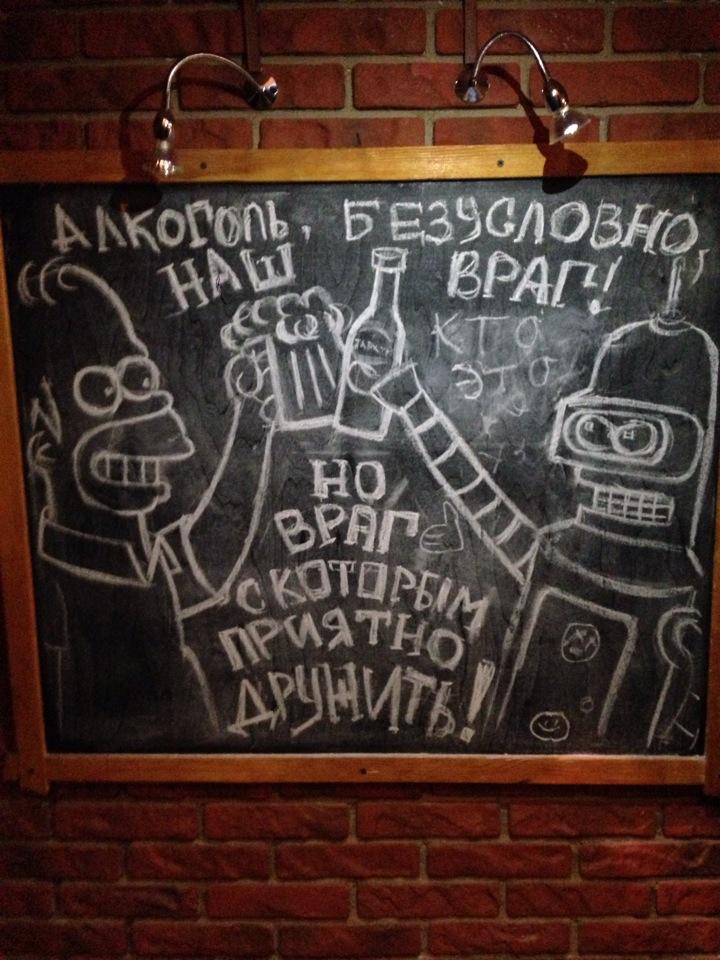 АЛКОГОЛЬ, БЕЗУСЛОВНО
НАШ ВРАГ!
КТО
ЭТО
?
НО
ВРАГ
С КОТОРЫМ
ПРИЯТНО
ДРУЖИТЬ!